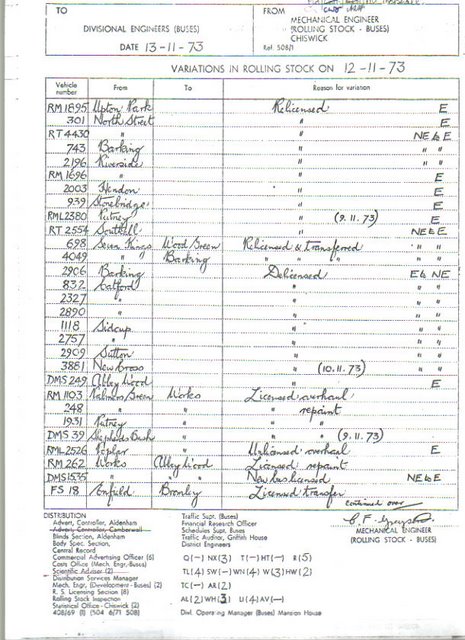 TO
FROM
DIVISIONAL ENGINEERS (BUSES)
MECHANICAL ENGINEER
(ROLLING STOCK - BUSES)
CHISWICK
DATE 13-11-73
Ref. 508/1
VARIATIONS IN ROLLING STOCK ON 12-11-73
Vehicle number From To Reason for variation
RM 1895 Upton Park Relicensed E
301 North Street " E
RT 4430 " " NE to E
743 Barking " " "
2196 Riverside " " "
RM 1696 " " E
2003 Hendon " E
939 Stonebridge " E
RML2380 Putney " (9.11.73) E
RT 2554 Southall " NE to E
698 Seven Kings Wood Green Relicensed & transferred " "
4049 " " Barking " " " " "
2906 Barking Delicensed E to NE
832 Catford " " "
2327 " " " "
2890 " " " "
1118 Sidcup " " "
2757 " " " "
2909 Sutton " " "
3881 New Cross " (10.11.73) " "
DMS 249 Abbey Wood " E
RM 1103 Palmers Green Works Licensed overhaul
248 " " " repaint
1931 Putney " " "
DMS 39 Shepherds Bush " " " (9.11.73)
RML 2526 Poplar " Unlicensed overhaul E
RM 262 Works Abbey Wood Licensed repaint
DMS1535 " " New bus licensed NE to E
FS 18 Enfield Bromley Licensed transfer
continued over
DISTRIBUTION
Advert. Controller, Aldenham
Advert. Controller, Camberwell
Blinds Section, Aldenham
Body Spec. Section,
Central Record
Commercial Advertising Officer (6)
Costs Office (Mech. Engr. Buses)
Scientific Adviser (2)
Distribution Services Manager
Mech. Engr. (Development - Buses) (2)
R. S. Licensing Section (8)
Rolling Stock Inspection
Statistical Office - Chiswick (2)
408/69 (1) (504 6/71 508)
Traffic Supt. (Buses)
Financial Research Officer
Schedules Supt. Buses
Traffic Auditor, Griffith House
District Engineers
Q(-) NX(3) T(-) HT(-) R(5)
TL(4) SW(-) WN(4) W(3) HW(2)
TC(-) AR(2)
AL(2) WH(3) U(4) AV(-)
Divl. Operating Manager (Buses) Mansion House
MECHANICAL ENGINEER
(ROLLING STOCK - BUSES)